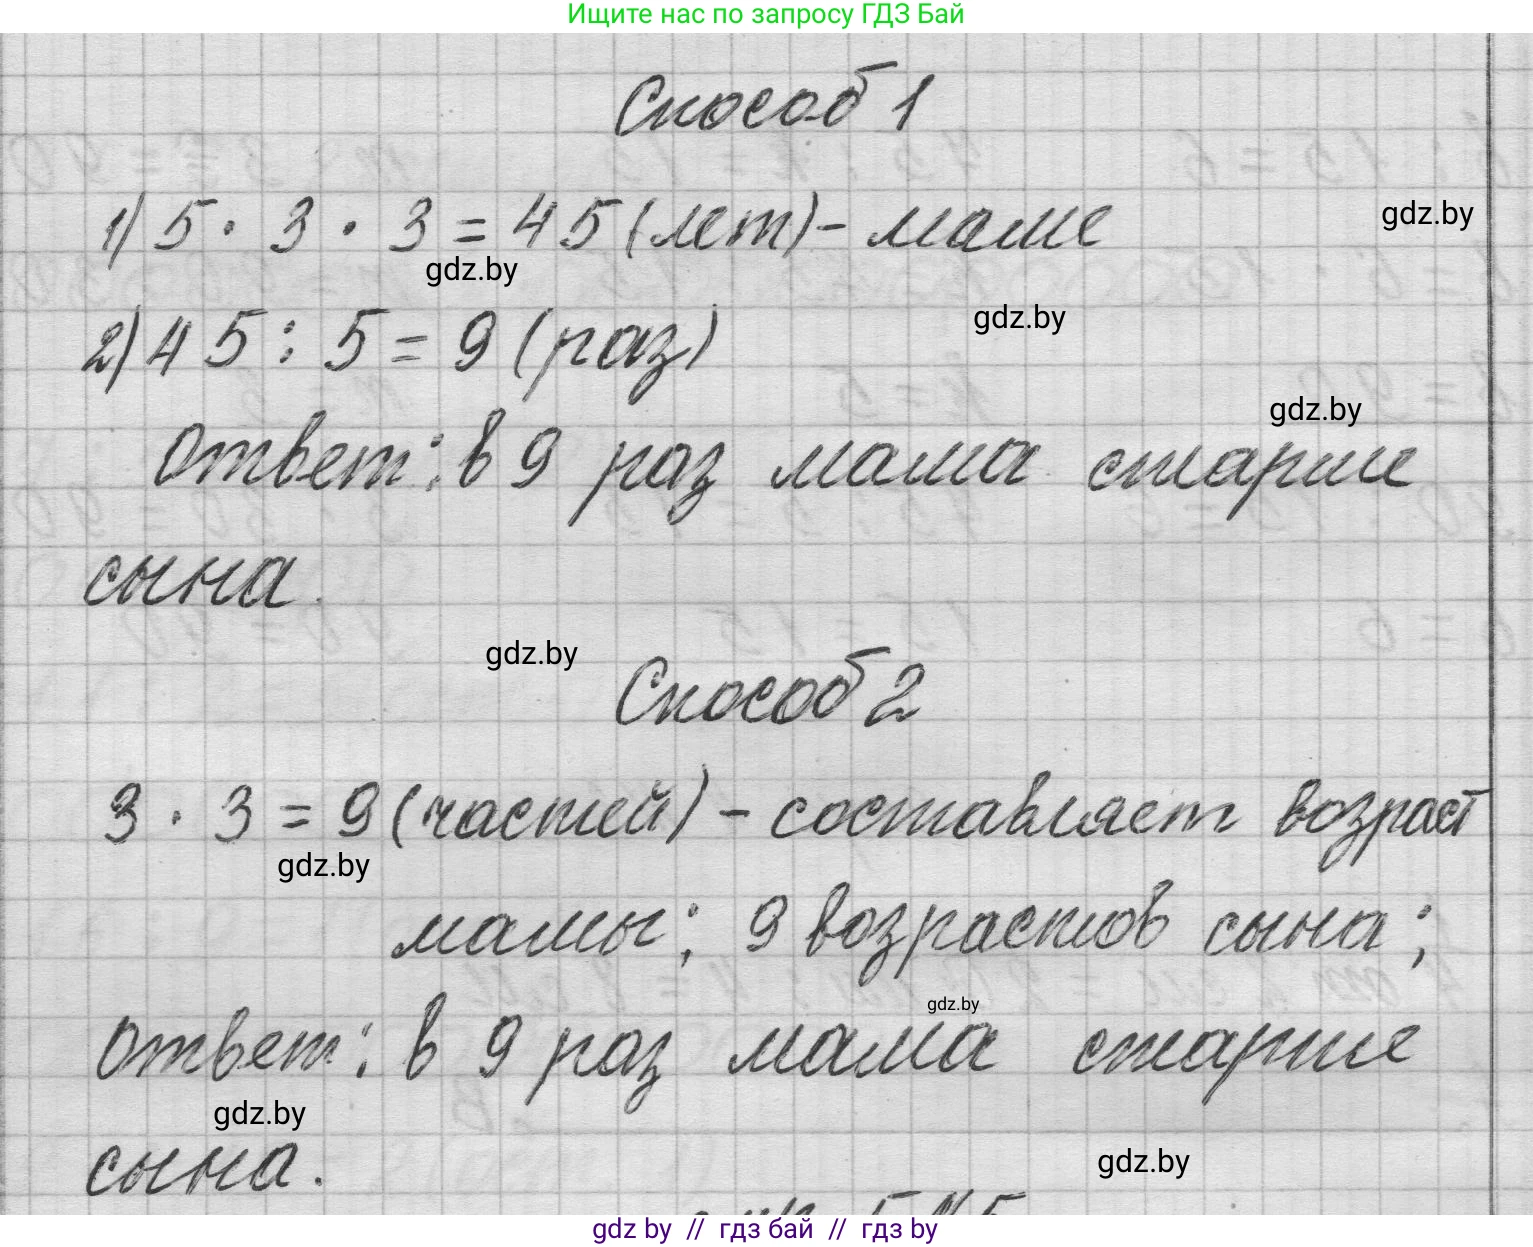 Ищите нас по запросу ГДЗ Бай
Способ 1
1) 5 · 3 · 3 = 45 (лет) - маме
gdz.by
gdz.by
2) 45 : 5 = 9 (раз)
gdz.by
gdz.by
Ответ: в 9 раз мама старше
сына.
gdz.by
Способ 2
3 · 3 = 9 (частей) - составляет возраст
gdz.by
мамы; 9 возрастов сына;
gdz.by
Ответ: в 9 раз мама старше
gdz.by
сына.
gdz.by
gdz by // гдз бай // гдз by